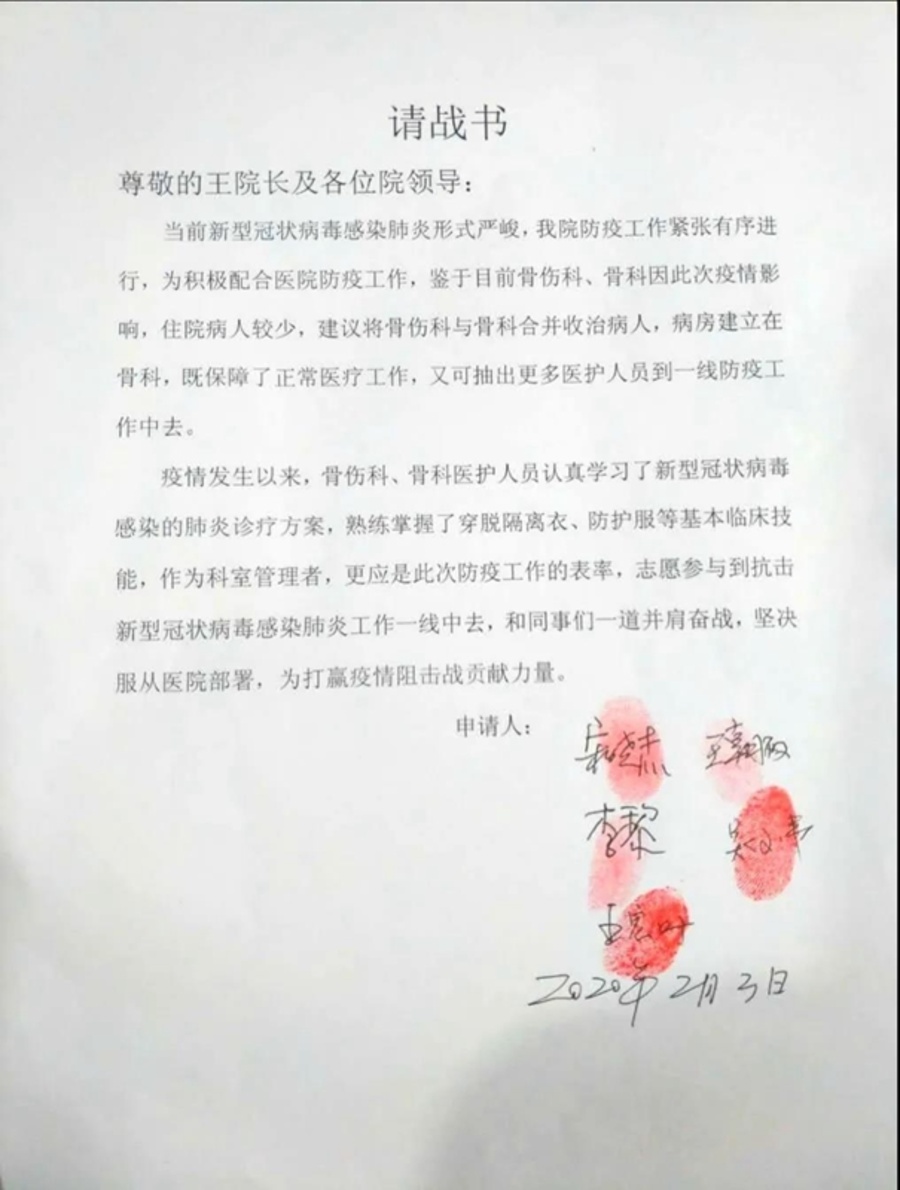 请战书
尊敬的王院长及各位院领导：
当前新型冠状病毒感染肺炎形式严峻，我院防疫工作紧张有序进
行，为积极配合医院防疫工作，鉴于目前骨伤科、骨科因此次疫情影
响，住院病人较少，建议将骨伤科与骨科合并收治病人，病房建立在
骨科，既保障了正常医疗工作，又可抽出更多医护人员到一线防疫工
作中去。
疫情发生以来，骨伤科、骨科医护人员认真学习了新型冠状病毒
感染的肺炎诊疗方案，熟练掌握了穿脱隔离衣、防护服等基本临床技
能，作为科室管理者，更应是此次防疫工作的表率，志愿参与到抗击
新型冠状病毒感染肺炎工作一线中去，和同事们一道并肩奋战，坚决
服从医院部署，为打赢疫情阻击战贡献力量。
申请人：
李黎
2020年2月3日